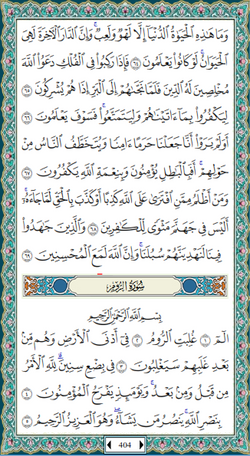 وَمَا هَٰذِهِ الْحَيَوٰةُ الدُّنْيَا إِلَّا لَهْوٌ وَلَعِبٌ ۚ وَإِنَّ الدَّارَ الْآخِرَةَ لَهِيَ
الْحَيَوَانُ ۚ لَوْ كَانُوا يَعْلَمُونَ ٦٤ فَإِذَا رَكِبُوا فِي الْفُلْكِ دَعَوُا اللَّهَ
مُخْلِصِينَ لَهُ الدِّينَ فَلَمَّا نَجَّىٰهُمْ إِلَى الْبَرِّ إِذَا هُمْ يُشْرِكُونَ ٦٥
لِيَكْفُرُوا بِمَا ءَاتَيْنَٰهُمْ وَلِيَتَمَتَّعُوا ۖ فَسَوْفَ يَعْلَمُونَ ٦٦
أَوَلَمْ يَرَوْا أَنَّا جَعَلْنَا حَرَمًا ءَامِنًا وَيُتَخَطَّفُ النَّاسُ مِنْ
حَوْلِهِمْ ۚ أَفَبِالْبَٰطِلِ يُؤْمِنُونَ وَبِنِعْمَةِ اللَّهِ يَكْفُرُونَ ٦٧
وَمَنْ أَظْلَمُ مِمَّنِ افْتَرَىٰ عَلَى اللَّهِ كَذِبًا أَوْ كَذَّبَ بِالْحَقِّ لَمَّا جَاءَهُ ۚ
أَلَيْسَ فِي جَهَنَّمَ مَثْوًى لِلْكَٰفِرِينَ ٦٨ وَالَّذِينَ جَٰهَدُوا
فِينَا لَنَهْدِيَنَّهُمْ سُبُلَنَا ۚ وَإِنَّ اللَّهَ لَمَعَ الْمُحْسِنِينَ ٦٩
سُورَةُ الرُّومِ
بِسْمِ اللَّهِ الرَّحْمَٰنِ الرَّحِيمِ
الٓمٓ ١ غُلِبَتِ الرُّومُ ٢ فِي أَدْنَى الْأَرْضِ وَهُمْ مِنْ
بَعْدِ غَلَبِهِمْ سَيَغْلِبُونَ ٣ فِي بِضْعِ سِنِينَ ۗ لِلَّهِ الْأَمْرُ
مِنْ قَبْلُ وَمِنْ بَعْدُ ۚ وَيَوْمَئِذٍ يَفْرَحُ الْمُؤْمِنُونَ ٤
بِنَصْرِ اللَّهِ ۚ يَنْصُرُ مَنْ يَشَاءُ ۖ وَهُوَ الْعَزِيزُ الرَّحِيمُ ٥
404